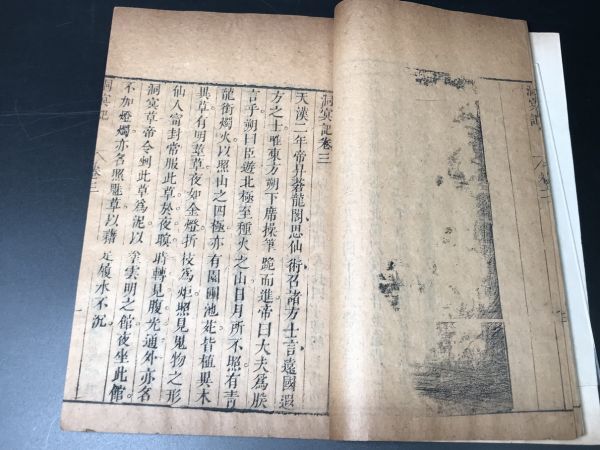 洞㝠記
卷二
洞㝠記卷三
天漢二年帝昇蒼龍閣思仙術召諸方士言遠國遐
方之士唯東方朔下席操筆跪而進帝曰大夫爲朕
言乎朔曰臣遊北極至種火之山日月所不照有青
龍銜燭火以照山之四極亦有園圃池苑皆植異木
異草有明莖草夜如金燈折枝爲炬照見鬼物之形
仙人甯封常服此草於夜暝時轉見腹光通外亦名
洞㝠草帝令剉此草爲泥以塗雲明之館夜坐此館
不加燈燭亦名照魅草以藉足履水不沉
洞㝠記
卷三